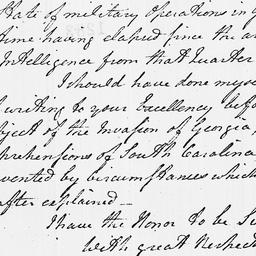 State of military Operations in
time having elapsed since the
Intelligence from that Quarter
I should have done myse
writing to your Excellency befo
bject of the Invasion of Georgia,
prehensions of South Carolina
vented by Circumstances which
after explained —
I have the Honor to be Si
With great Respect